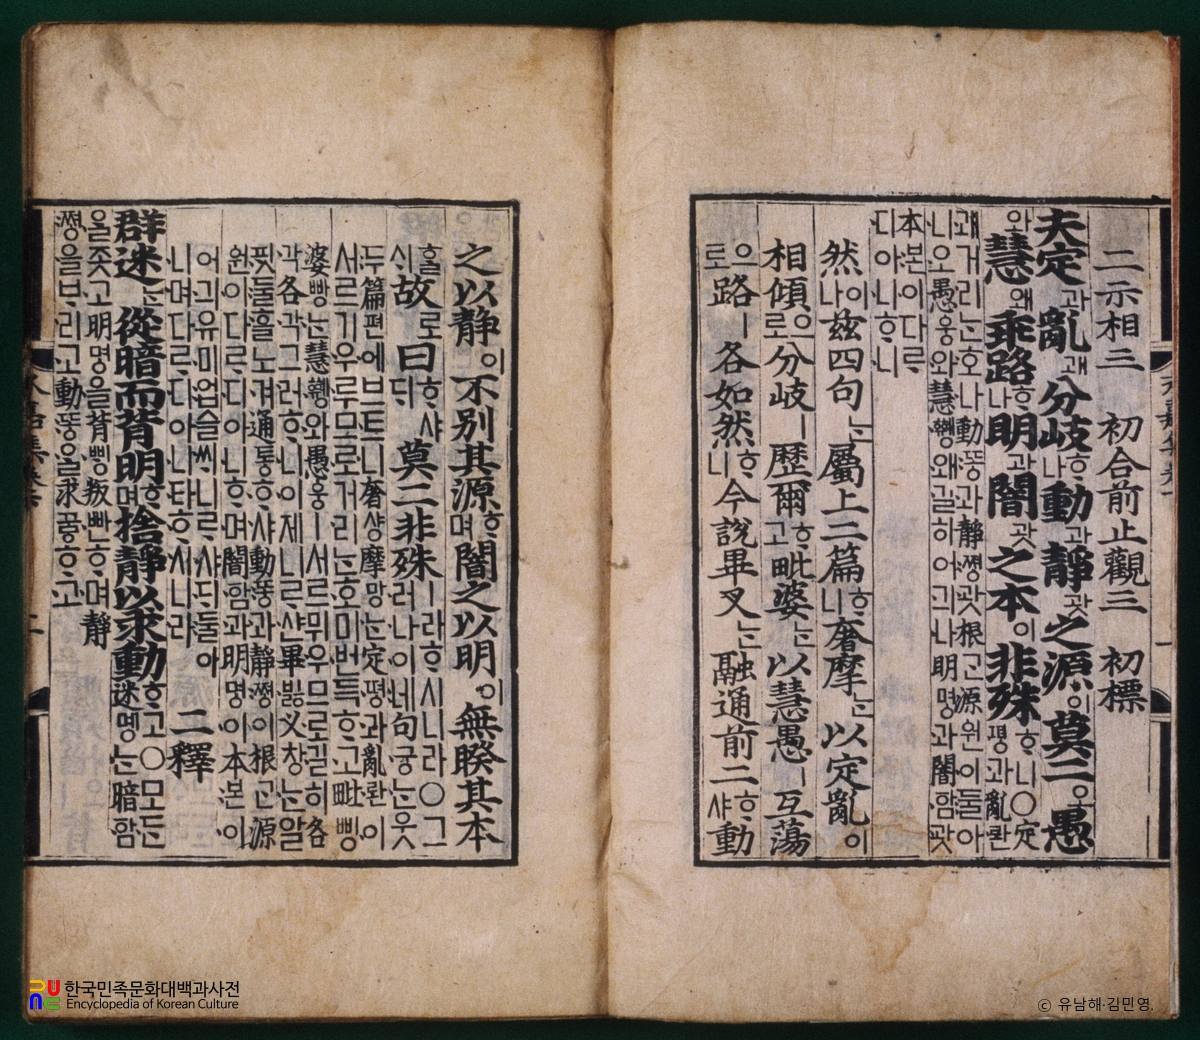 二示相三 初合前止觀三 初標
夫定과亂괘分岐ᄒᆞ나動과靜괏之源이莫二ᄒᆞ고愚
와慧왜乖路ᄒᆞ나明과闇괏之本이非殊ᄒᆞ니〇定뗭과亂롼
괘거리ᄂᆞᆫ호나動ᄯᅩᇰ과靜쪄ᇰ괏根ᄀᆞᆫ源원이둘아
니오愚웅와慧ᅘᅰᆼ왜길히어긔나明명과闇함괏
本본이다ᄅᆞ
디아니ᄒᆞ니
然나이玆四句ᄂᆞᆫ屬上二篇ᄒᆞ니奢摩ᄂᆞᆫ以定亂이
相傾ᄋᆞ로分岐ㅣ歷爾ᄒᆞ고毗婆ᄂᆞᆫ以慧愚ㅣ互蕩
ᄋᆞ로路ㅣ各如然ᄒᆞ니今說畢叉ᄂᆞᆫ融通前二ᄒᆞ샤動
之以靜이不別其源ᄒᆞ며闇之以明이無暌其本
ᄒᆞᆯᄉᆡ故로曰ᄒᆞ샤ᄃᆡ莫二非殊ㅣ라ᄒᆞ시니라〇그러나이네句궁ᄂᆞᆫ웃
두篇편에브트니奢샹摩망ᄂᆞᆫ定뗭과亂롼이
서르기우루므로거리ᄂᆞᆫ호미번득ᄒᆞ고毗삥
婆빵ᄂᆞᆫ慧ᅘᅰᆼ와愚웅ㅣ서르뮈우므로길히各
각各각그러ᄒᆞ니이제니ᄅᆞ샨畢비ᇙ叉창ᄂᆞᆫ알
ᄑᆡᆺ둘흘노겨通토ᇰᄒᆞ샤動ᄯᅩᇰ과靜쪄ᇰ이根ᄀᆞᆫ源
원이다ᄅᆞ디아니ᄒᆞ며闇함과明명이本본이
어긔유미업슬ᄊᆡ니ᄅᆞ샤ᄃᆡ둘아
니며다ᄅᆞ디아니타ᄒᆞ시니라 二釋
群迷ᄂᆞᆫ從暗而背明ᄒᆞ며捨靜以求動ᄒᆞ고〇모ᄃᆞᆫ迷몡ᄂᆞᆫ暗함
ᄋᆞᆯ좃고明명을背삥叛빤ᄒᆞ며靜
쪄ᇰ을ᄇᆞ리고動ᄯᅩᇰ을求꿍ᄒᆞ고
한국민족문화대백과사전
Encyclopedia of Korean Culture
© 유남해·김민영.